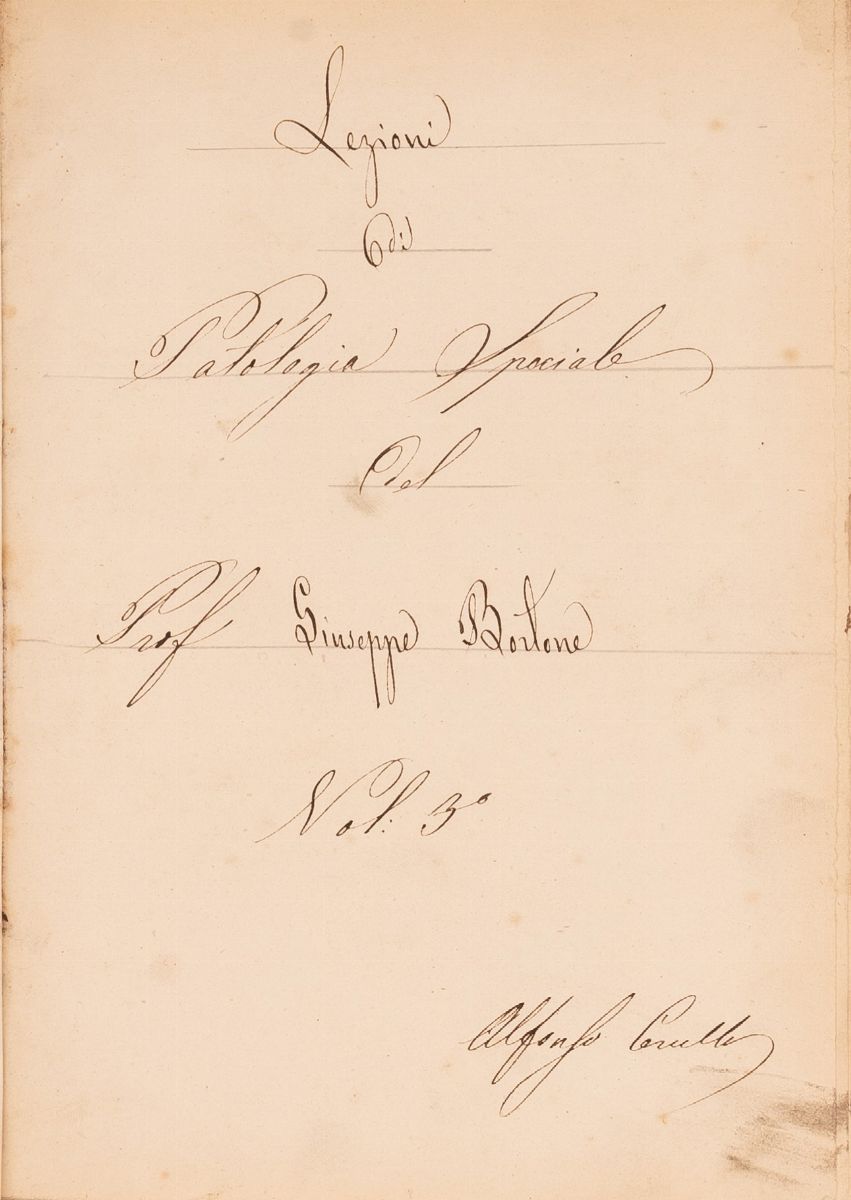 Lezioni
di
Patologia Speciale
del
Prof Giuseppe Bortone
Vol: 3º
Alfonso Cerullo